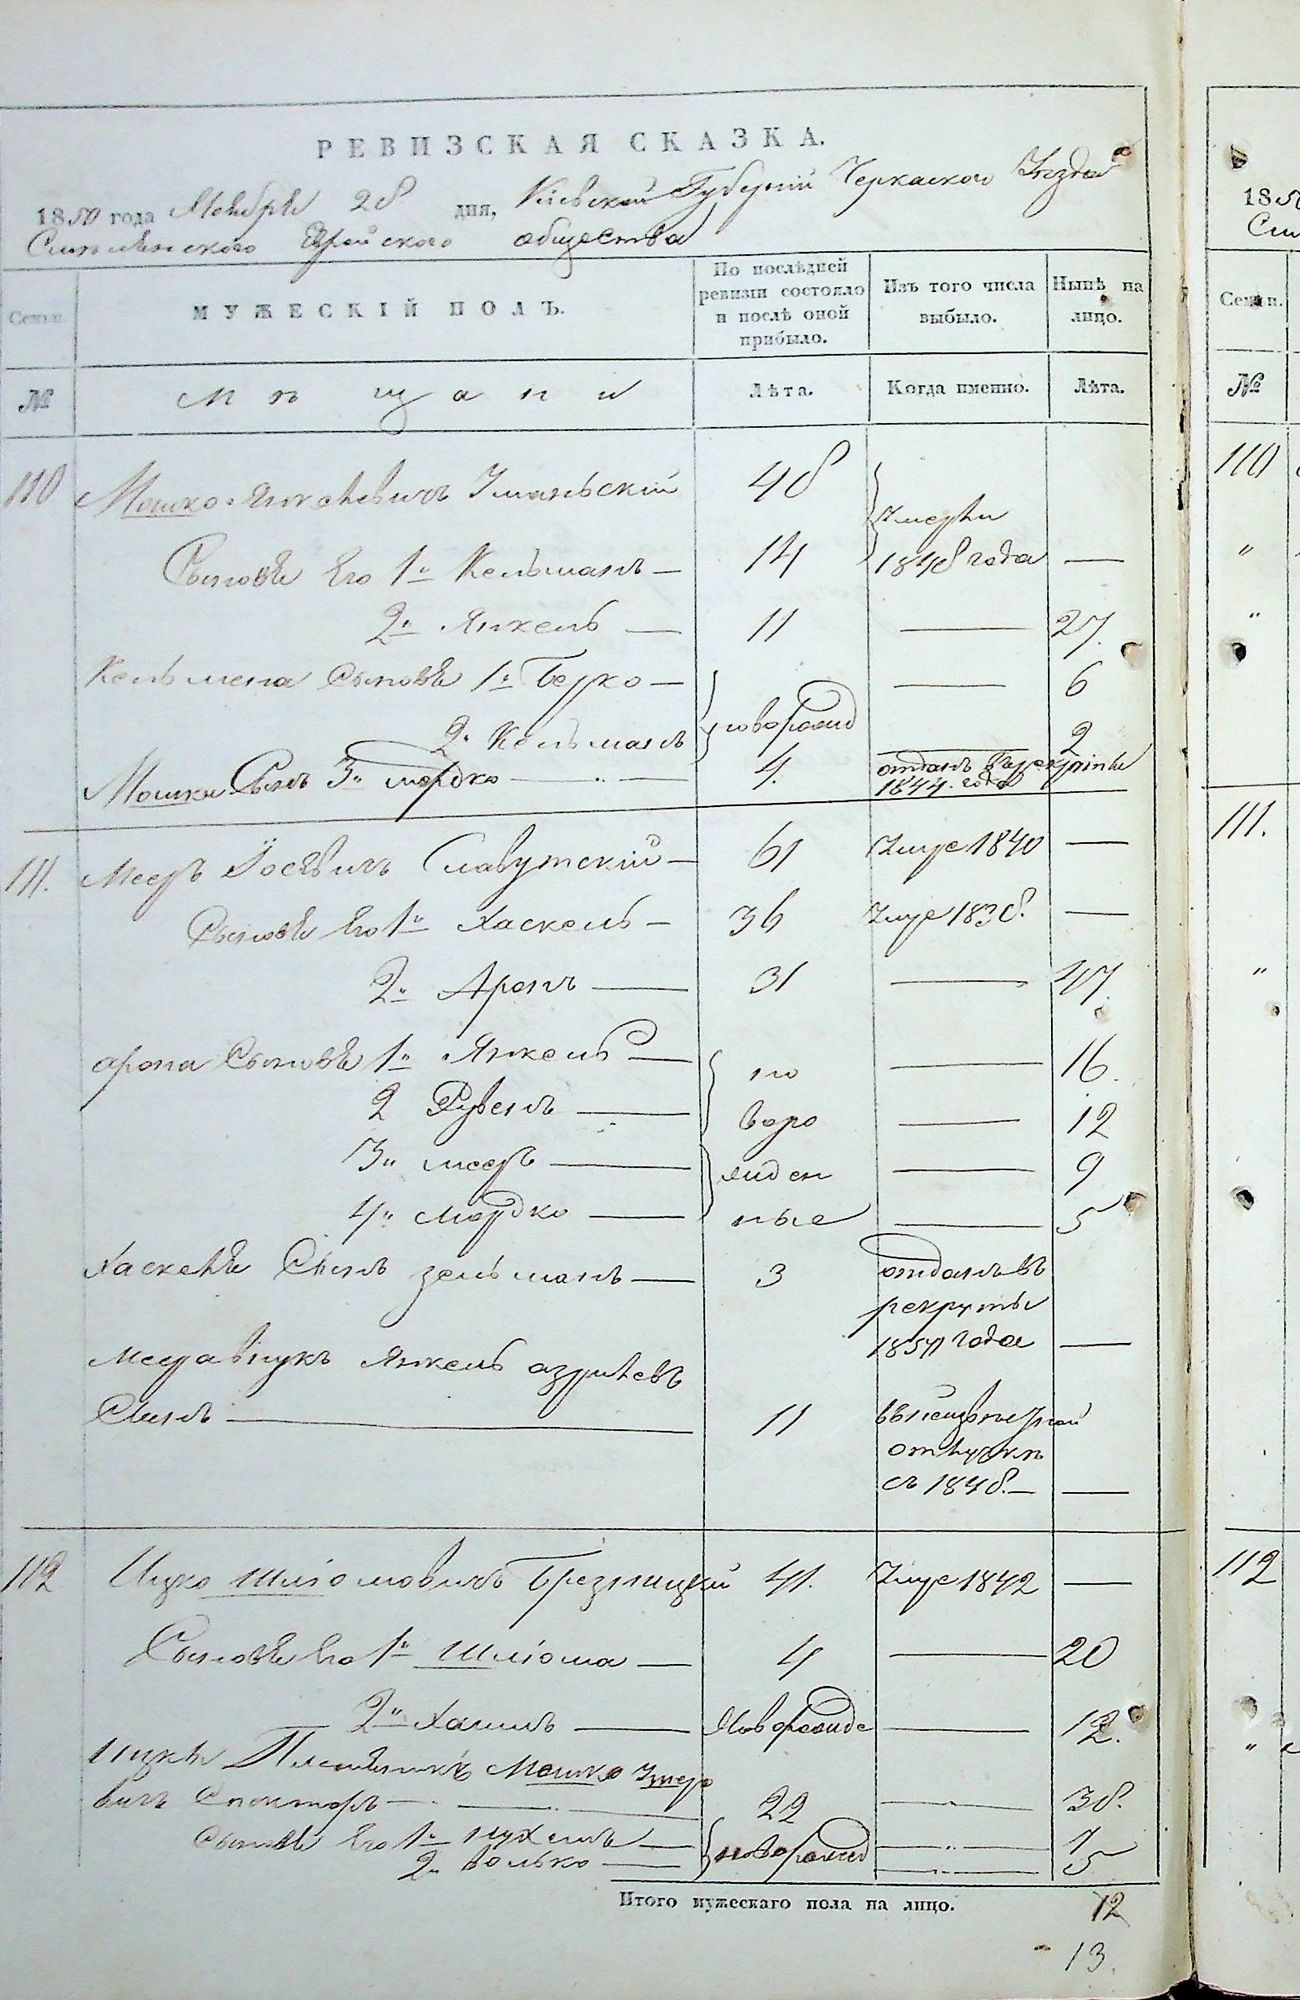 РЕВИЗСКАЯ СКАЗКА.
1850 года Ноября 28 дня, Кіевской Губерній Черкаского Уезда
Смилянского Еврейского общества
Семьи.
МУЖЕСКІЙ ПОЛЪ.
По послѣдней ревизіи состояло и послѣ оной прибыло.
Изъ того числа выбыло.
Нынѣ на лицо.
№
Мѣщани
Лѣта.
Когда именно.
Лѣта.
110 Мошко Янкелевичъ Уманьскій 48 Умерли
Сыновя Его 1й Кельманъ — 14 1848 года —
2й Янкель — 11 — 27.
Кельмена Сыновя 1й Берко — — 6
2й Кельманъ новорожд 2
Мошки Сынъ 3й мордко — 4. отданъ в рекруты
1844. года
111. Мееръ Іосевичъ Славутскій — 61 Умре 1840 —
Сыновя Его 1й Хаскель — 36 Умре 1838. —
2й Аронъ — 31 — 47.
арона Сыновя 1й Янкель — но — 16.
2 Рувенъ — воро — 12
3й мееръ — жден — 9
4й мордко — ные — 5
Хаскеля Сынъ зельманъ — 3 отданъ въ
рекруты
1850 года —
Меера внукъ Янкель азрилевъ
Сынъ — 11
съ 1848. — —
112 Ицко Шліомовичъ Брезницкій 41. Умре 1842 —
Сыновя Его 1й Шліома — 4 — 20
2й Хаимъ — Новорожде — 12.
Ицки Племянникъ Мошко Умеро
вичъ Спекторъ — 22 — 38.
Сыновя Его 1й нухимъ — новорожд — 7
2й волько — — 5
Итого мужескаго пола на лицо. 12
13.
1850
См
Семьи.
№
110
"
"
111.
"
112
"